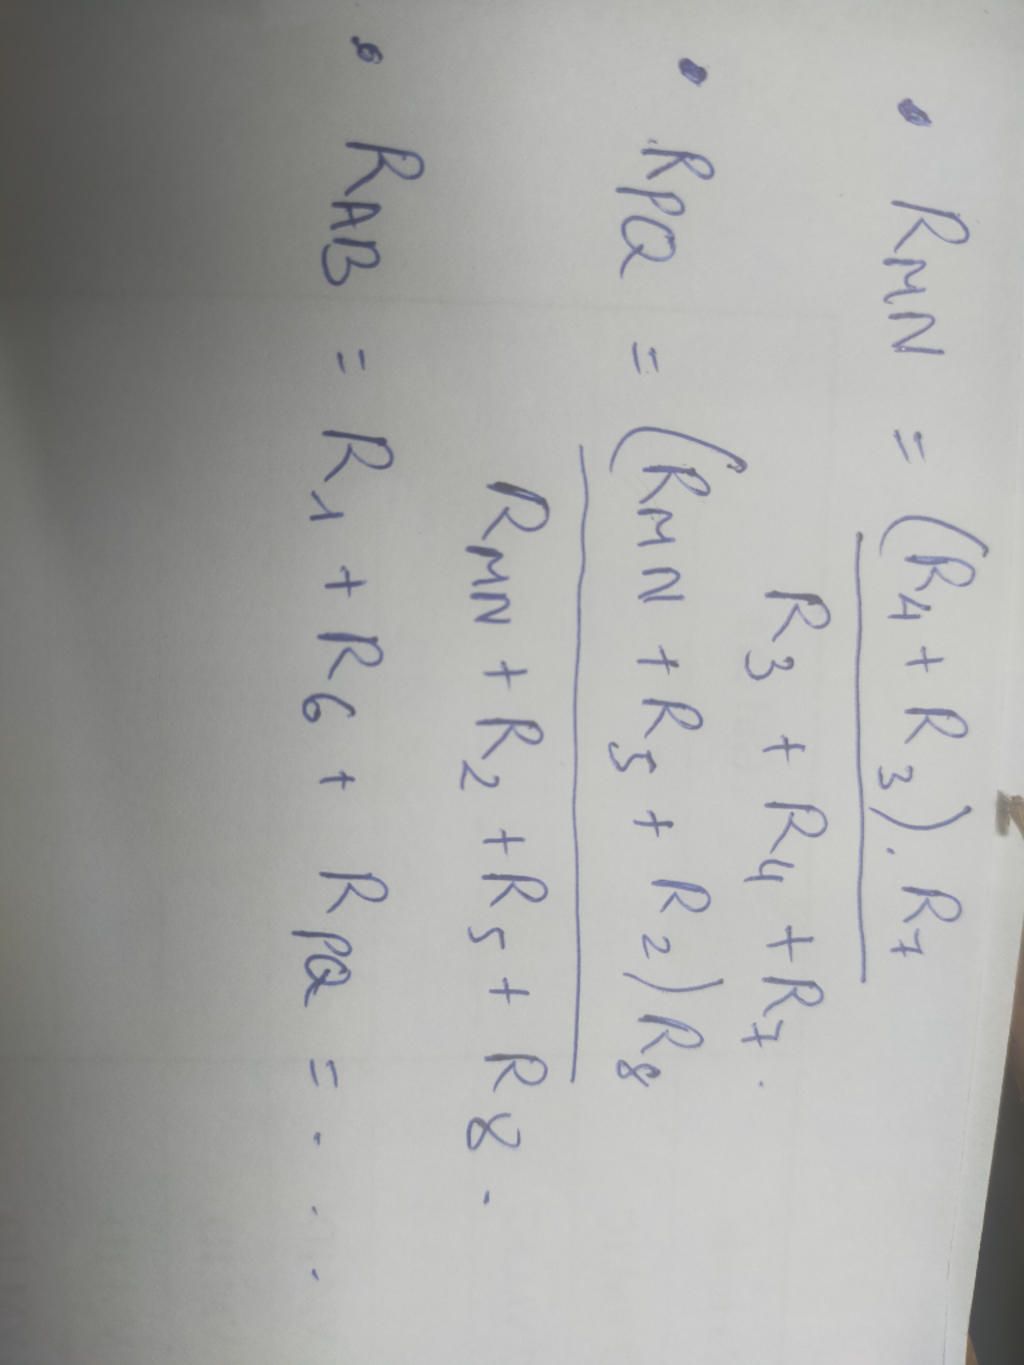 • RMN = (R4 + R3) . R7
R3 + R4 + R7 .
• RPQ = (RMN + R5 + R2) R8
RMN + R2 + R5 + R8 .
• RAB = R1 + R6 + RPQ = . . .